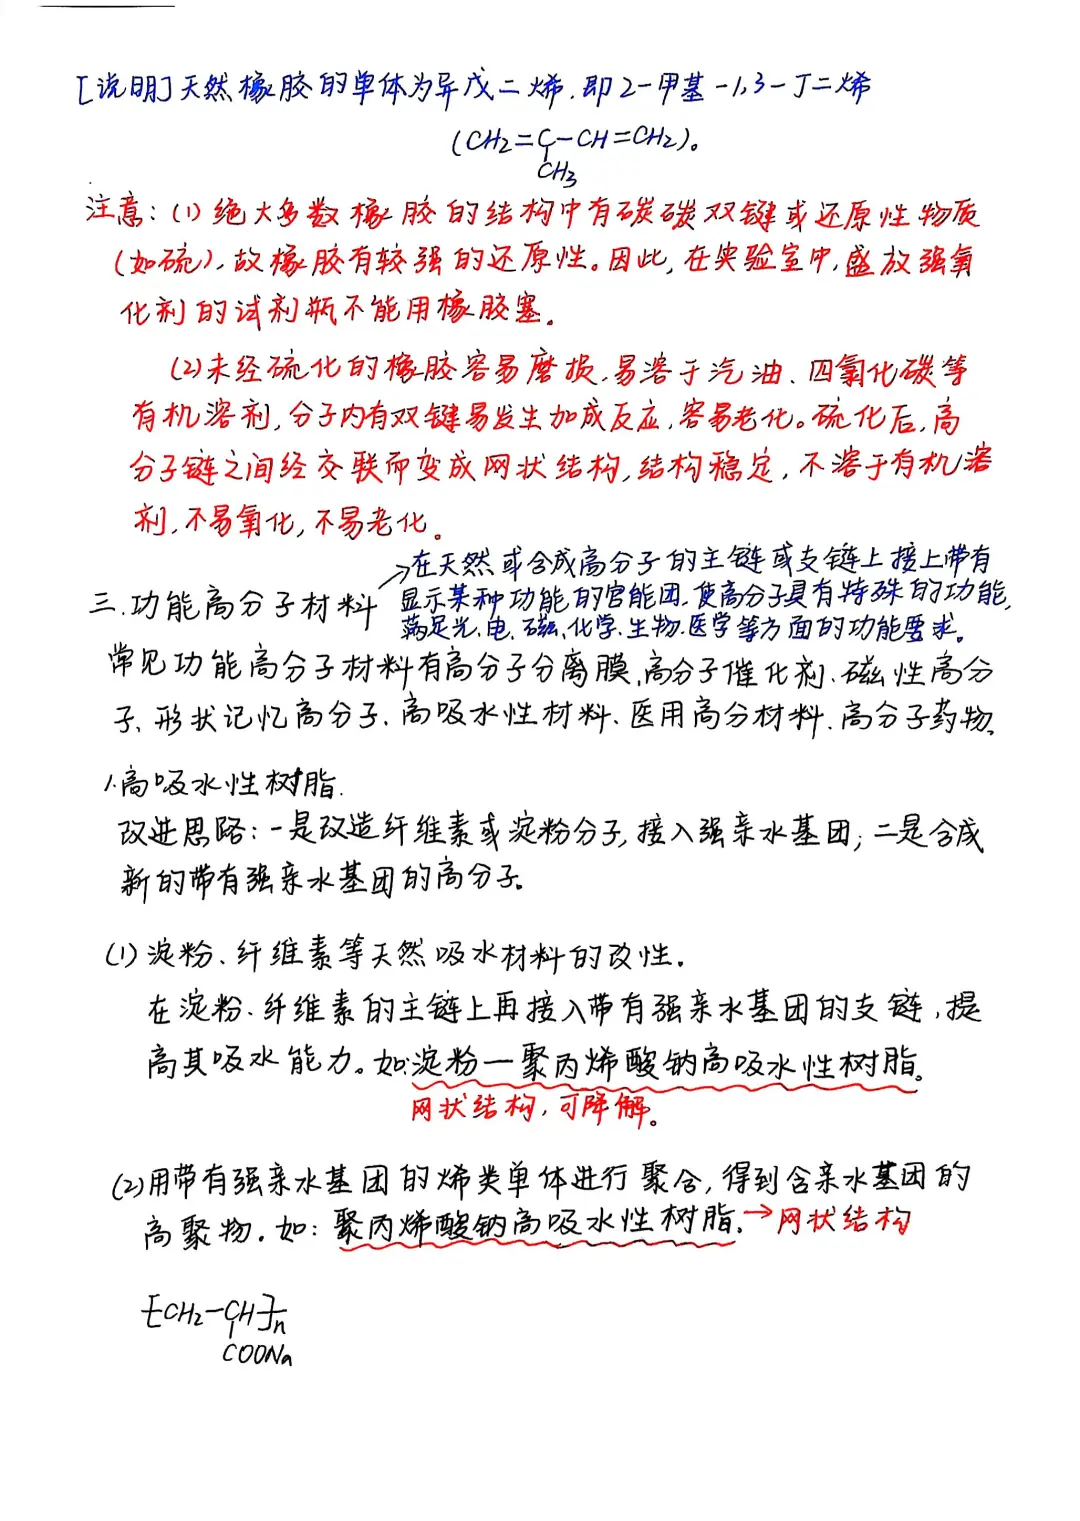 [说明]天然橡胶的单体为异戊二烯.即2-甲基-1,3-丁二烯
(CH₂=C-CH=CH₂)。
CH₃
注意:(1)绝大多数橡胶的结构中有碳碳双键或还原性物质
(如硫),故橡胶有较强的还原性。因此,在实验室中,盛放强氧
化剂的试剂瓶不能用橡胶塞。
(2)未经硫化的橡胶容易磨损.易溶于汽油、四氯化碳等
有机溶剂,分子内有双键易发生加成反应,容易老化。硫化后,高
分子链之间经交联而变成网状结构,结构稳定,不溶于有机溶
剂,不易氧化,不易老化。
→在天然或合成高分子的主链或支链上接上带有
三.功能高分子材料 显示某种功能的官能团.使高分子具有特殊的功能,
满足光、电、磁、化学、生物、医学等方面的功能要求。
常见功能高分子材料有高分子分离膜、高分子催化剂、磁性高分
子、形状记忆高分子、高吸水性材料、医用高分材料、高分子药物。
1.高吸水性树脂.
改进思路:一是改造纤维素或淀粉分子,接入强亲水基团;二是合成
新的带有强亲水基团的高分子。
(1)淀粉、纤维素等天然吸水材料的改性.
在淀粉、纤维素的主链上再接入带有强亲水基团的支链,提
高其吸水能力。如:淀粉一聚丙烯酸钠高吸水性树脂。
网状结构,可降解。
(2)用带有强亲水基团的烯类单体进行聚合,得到含亲水基团的
高聚物。如:聚丙烯酸钠高吸水性树脂.→网状结构
[CH₂-CH]n
COONa